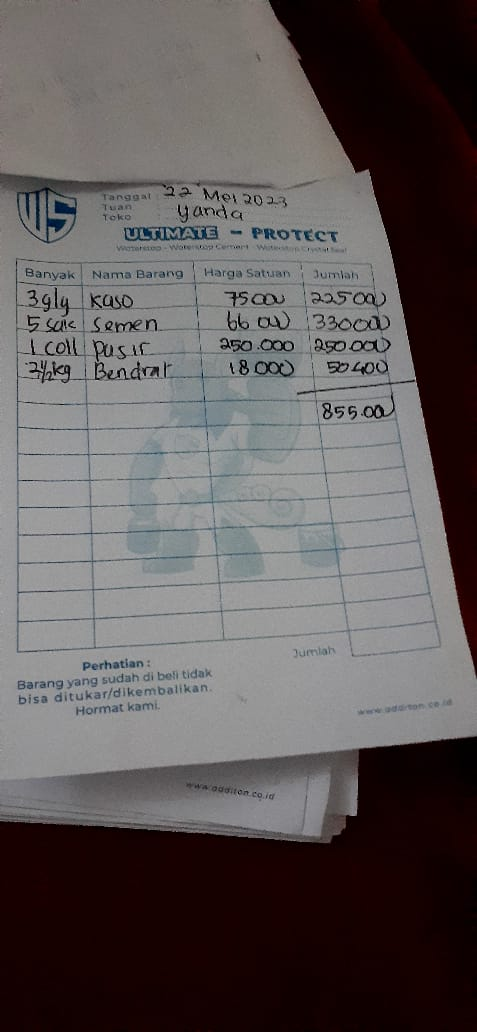 Tanggal : 22 Mei 2023
Tuan
Toko : Yanda
ULTIMATE - PROTECT
Waterstop - Waterstop Cement - Waterstop Crystal Seal
Banyak Nama Barang Harga Satuan Jumlah
3 glg Kaso 75000 225000
5 sak Semen 66000 330000
1 coll pasir 250.000 250.000
2 1/2 kg Bendrat 18.000 50400
855.000
Jumlah
Perhatian :
Barang yang sudah di beli tidak
bisa ditukar/dikembalikan.
Hormat kami.
www.additon.co.id
www.additon.co.id